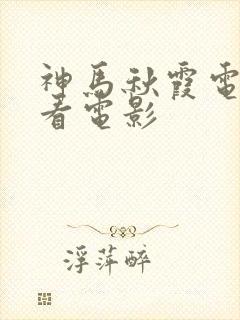 神馬秋霞電
看電影
浮萍醉